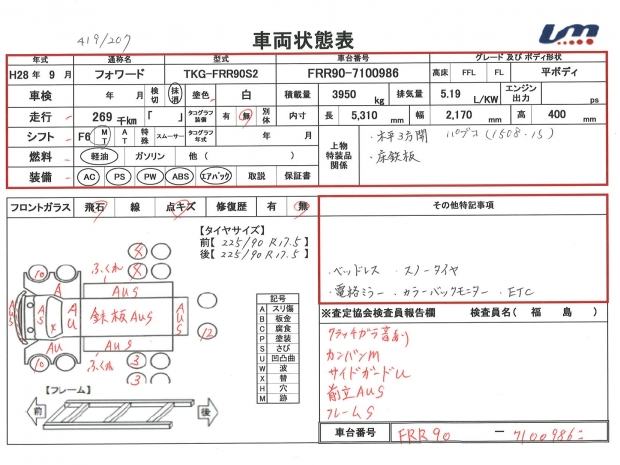 419/207
車両状態表
LM
年式 通称名 型式 車台番号 グレード 及び ボディ形状
H28 年 9 月 フォワード TKG-FRR90S2 FRR90-7100986 高床 FFL FL 平ボディ
車検 年 月 検切 抹消 塗色 白 積載量 3950 kg 排気量 5.19 L/KW エンジン出力 ps
走行 269 千km 「 」 タコグラフ装備 有 無 別体 内寸 長 5,310 mm 幅 2,170 mm 高 400 mm
シフト F6 MT AT 特殊 スムーサー タコグラフ年式 年 月 上物特装品関係 ・木平3方開 パブコ(1508.15)
燃料 軽油 ガソリン 他 ( ) ・床鉄板
装備 AC PS PW ABS エアバック 取説 保証書
フロントガラス 飛石 線 点キズ 修復歴 有 無 その他特記事項
【タイヤサイズ】
前【 225/90 R17.5 】
後【 225/90 R17.5 】
・ベッドレス ・スノータイヤ
・電格ミラー ・カラーバックモニター ・ETC
10 A ふくれ AUS
AUS AS X AU 鉄板AUS 12
AU ふくれ AUS
10 3
3
記号
A スリ傷
B 板金
C 腐食
P 塗装
S さび
U 凹凸曲
W 波
X 替
H 穴
M 跡
※査定協会検査員報告欄 検査員名( 福 島 )
クラッチガラ音あり
カンバンM
サイドガードU
前立AUS
フレームS
【フレーム】
前 後
車台番号 FRR90 - 7100986